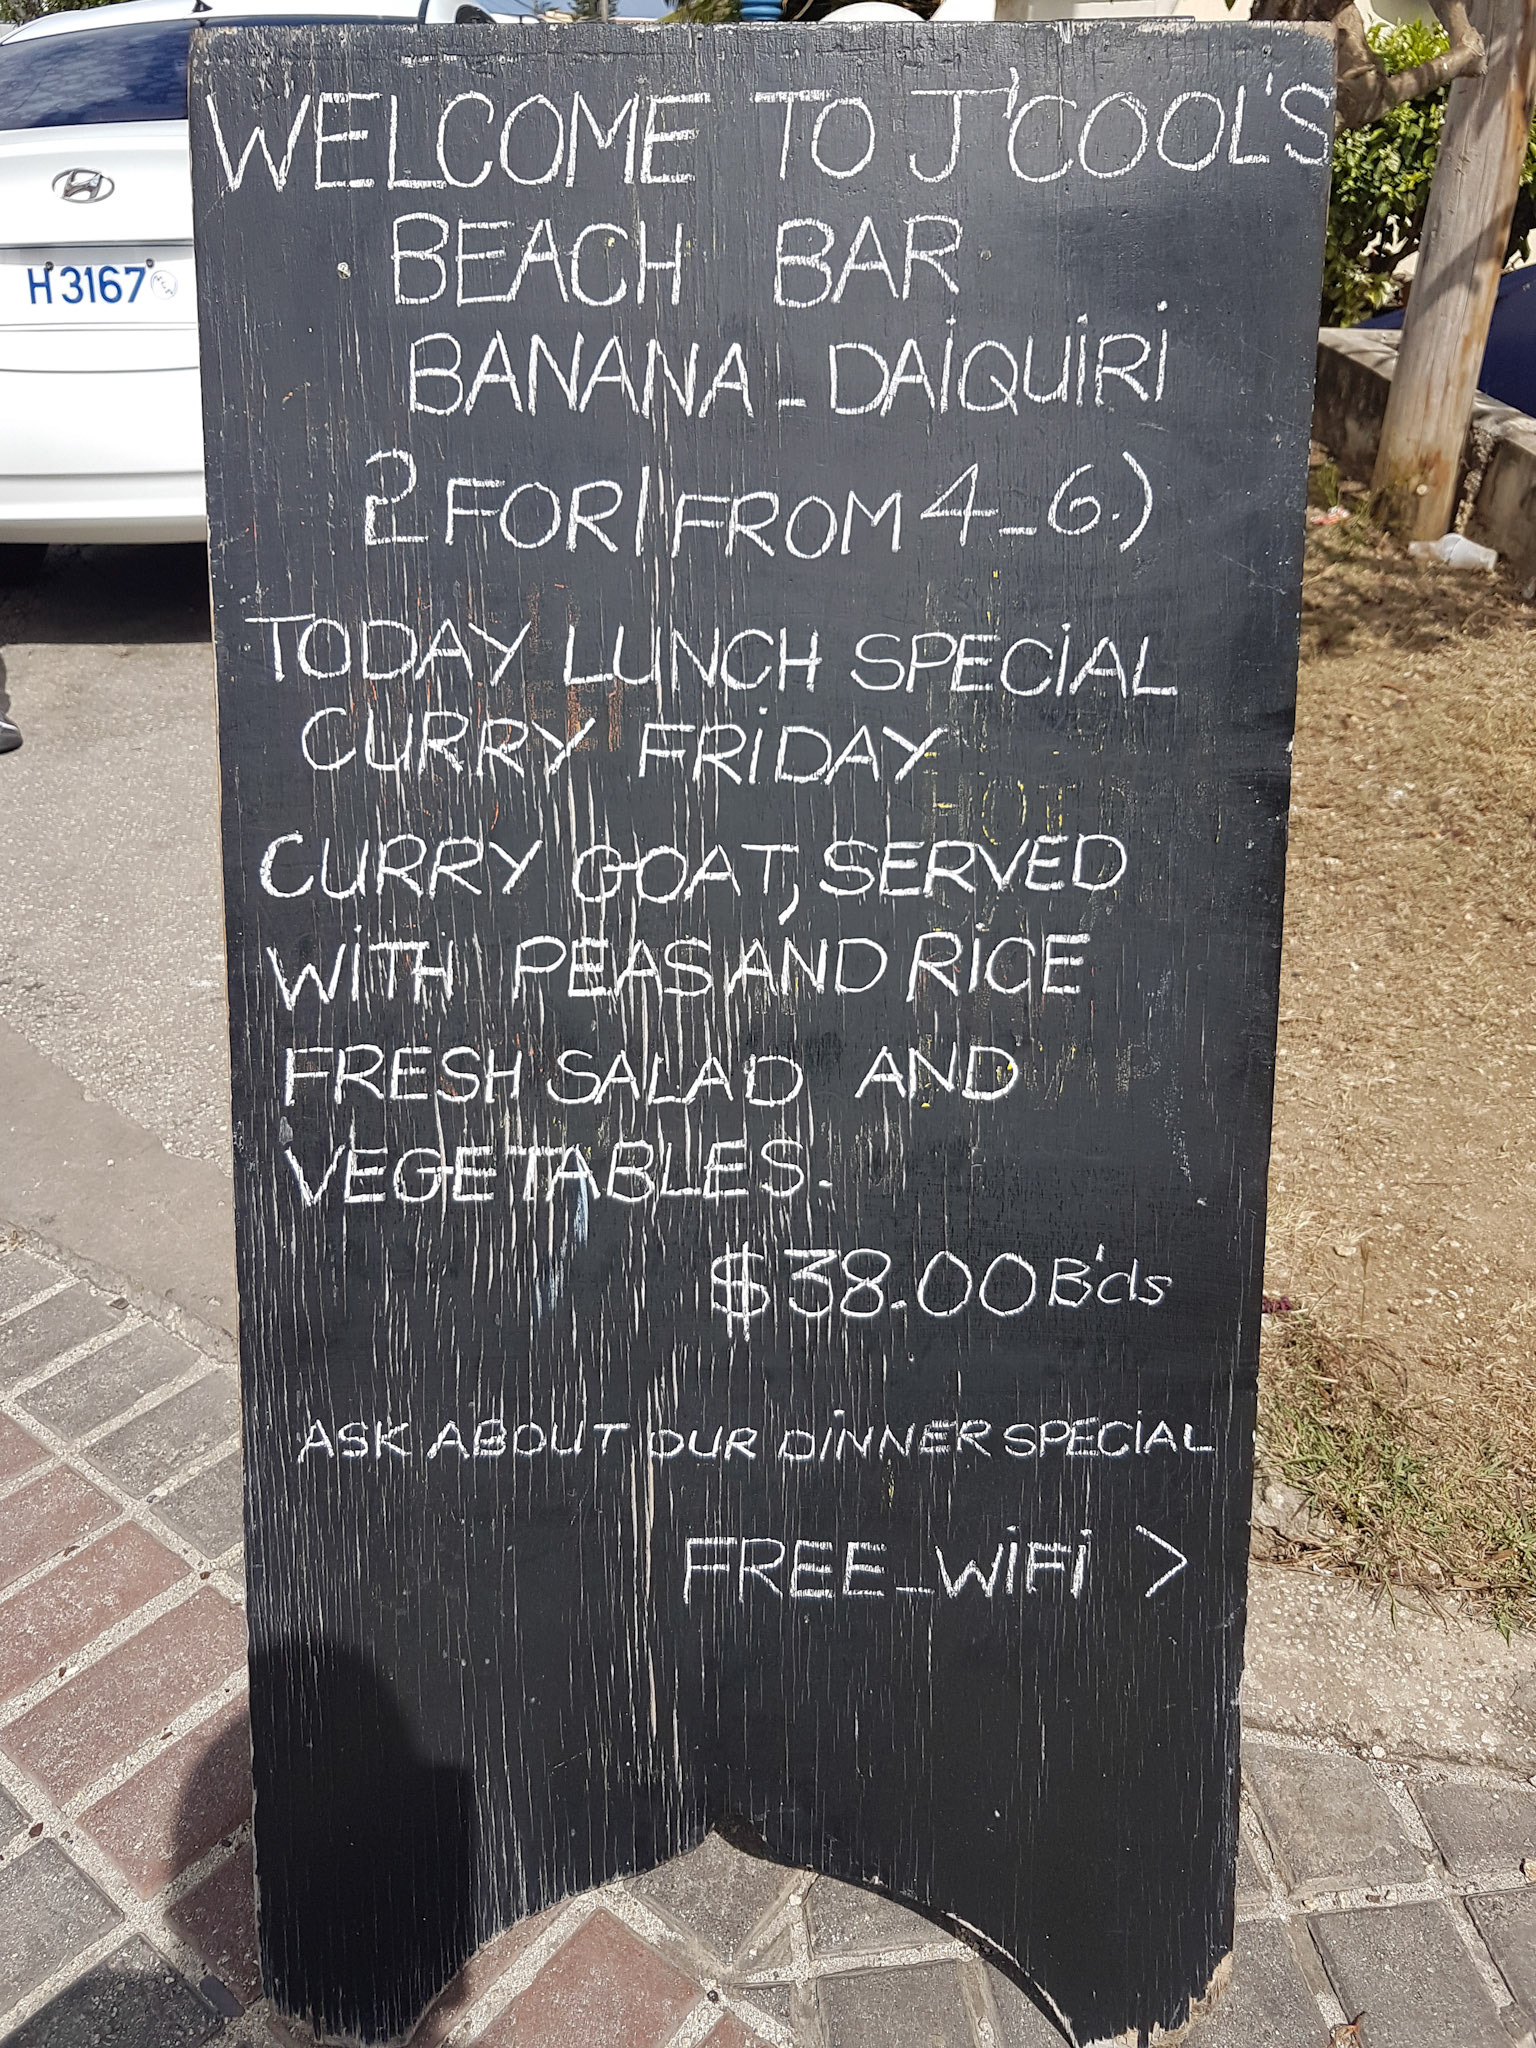 WELCOME TO J'COOL'S
BEACH BAR
BANANA - DAIQUIRI
2 FOR 1 FROM 4-6.)
TODAY LUNCH SPECIAL
CURRY FRIDAY
CURRY GOAT, SERVED
WITH PEAS AND RICE
FRESH SALAD AND
VEGETABLES.
$38.00 B'ds
ASK ABOUT OUR DINNER SPECIAL
FREE-WIFI >
H3167